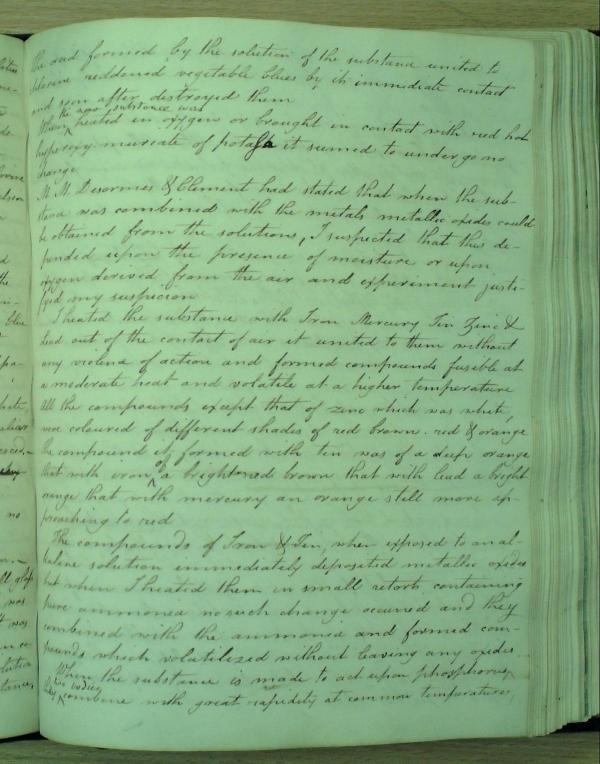 the acid formed by the solution of the substance united to
chlorine reddened vegetable blues by its immediate contact
and soon after destroyed them
When the new substance was heated in oxygen or brought in contact with red hot
hyperoxy muriate of potash it seemed to undergo no
change
M. M. Desormes & Clement had stated that when the sub-
stance was combined with the metals metallic oxides could
be obtained from the solutions, I suspected that this de-
pended upon the presence of moisture or upon
oxygen derived from the air and experiment justi-
fied my suspicion
I heated the substance with Iron Mercury Tin Zinc &
lead out of the contact of air it united to them without
any violence of action and formed compounds fusible at
a moderate heat and volatile at a higher temperature
All the compounds except that of zinc which was white
were coloured of different shades of red brown. red & orange
the compound it formed with tin was of a deep orange
that with iron of a bright red brown that with lead a bright
orange that with mercury an orange still more ap-
proaching to red
The compounds of Iron & Tin, when exposed to an al-
kaline solution immediately deposited metallic oxides
but when I heated them in small retorts containing
pure ammonia no such change occured and they
combined with the ammonia and formed com-
pounds which volatilized without leaving any oxides
When the substance is made to act upon phosphorus,
the bodies combine with great rapidity at common temperatures,